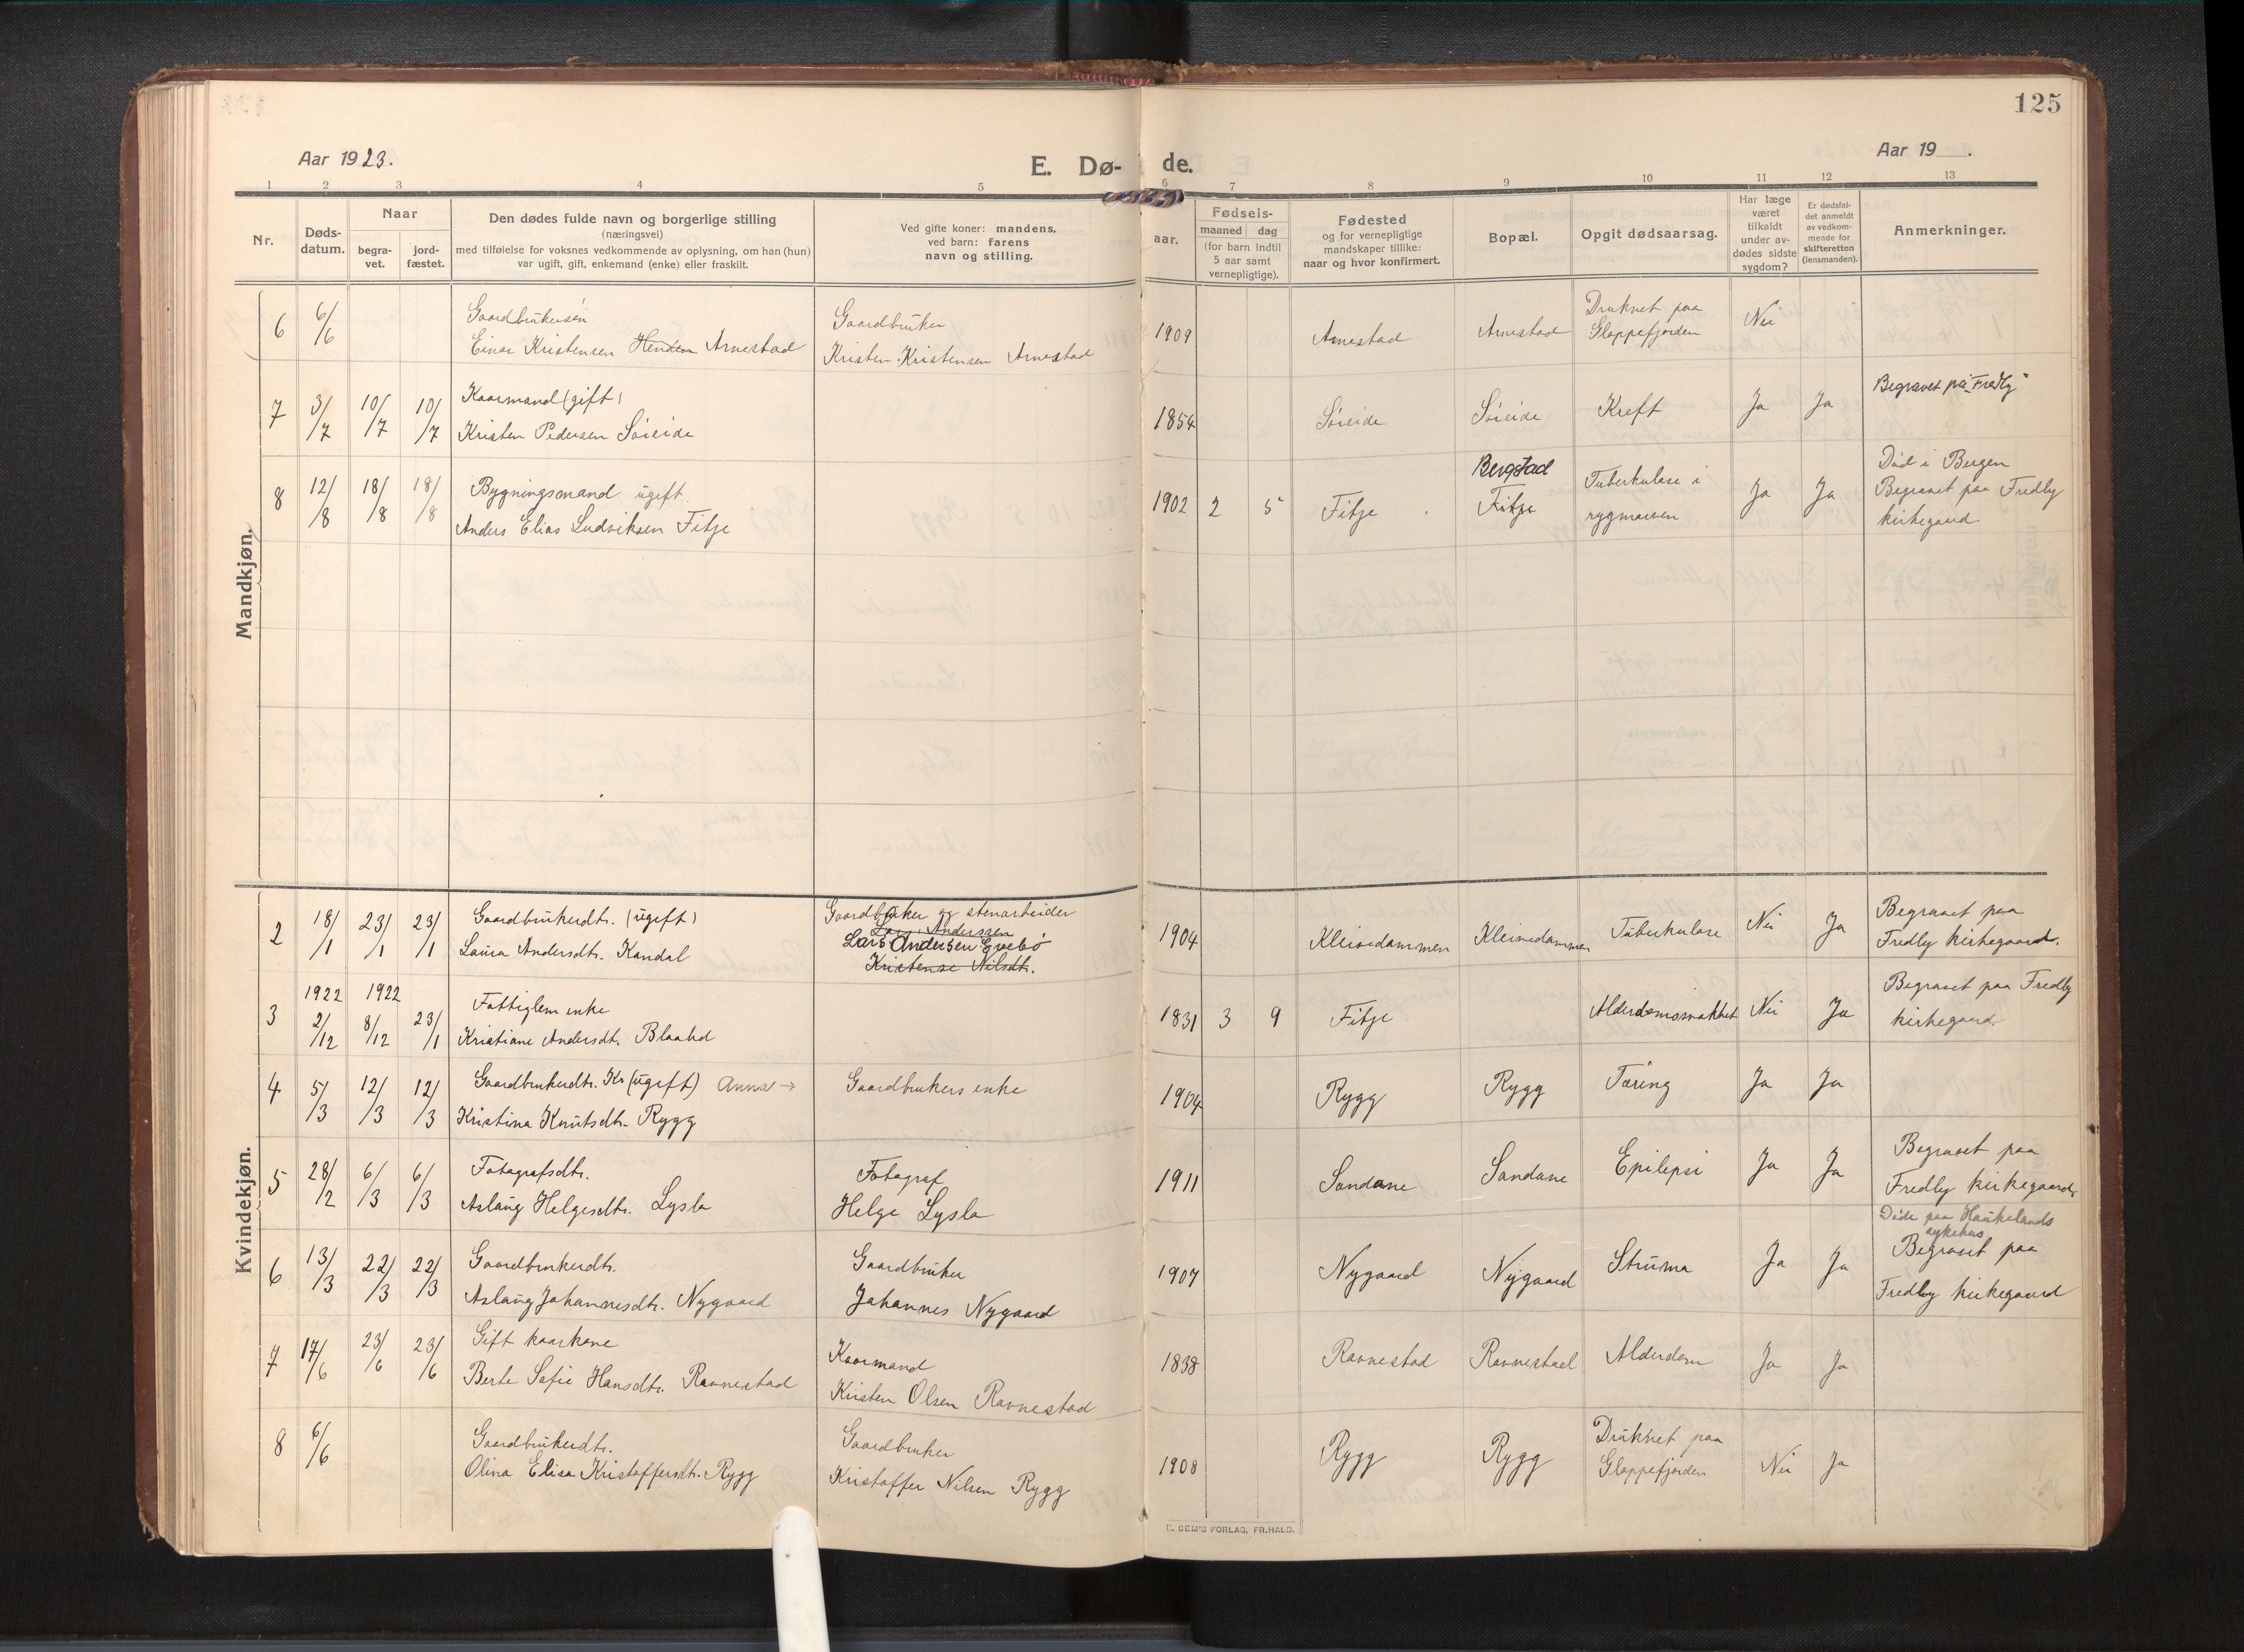 125
Aar 1923.
E. Dø- de.
Aar 19 .
1 2 3 4 5 6 7 8 9 10 11 12 13
Nr.
Døds-
datum.
Naar
begra-
vet.
jord-
fæstet.
Den dødes fulde navn og borgerlige stilling
(næringsvei)
med tilføielse for voksnes vedkommende av oplysning, om han (hun)
var ugift, gift, enkemand (enke) eller fraskilt.
Ved gifte koner: mandens,
ved barn: farens
navn og stilling.
Fødsels-
aar.
maaned dag
(for barn indtil
5 aar samt
vernepligtige).
Fødested
og for vernepligtige
mandskaper tillike:
naar og hvor konfirmert.
Bopæl.
Opgit dødsaarsag.
Har læge
været
tilkaldt
under av-
dødes sidste
sygdom?
Er dødsfal-
det anmeldt
av vedkom-
mende for
skifteretten
(lensmanden).
Anmerkninger.
Mandkjøn.
6 6/6 Gaardbrukersøn Gaardbruker 1909 Arnestad Arnestad Druknet paa Nei
Einar Kristensen Henden Arnestad Kristen Kristensen Arnestad Gloppefjorden
7 3/7 10/7 10/7 Kaarmand (gift) 1854 Søreide Søreide Kreft Ja Ja Begravet på "Fredly"
Kristen Pedersen Søreide
8 12/8 18/8 18/8 Bygningsmand ugift. 1902 2 5 Fitje Bergstad Tuberkulose i Ja Ja Død i Bergen
Anders Elias Ludviksen Fitje Fitje rygmarven Begravet paa Fredly
kirkegaard.
Kvindekjøn.
2 18/1 23/1 23/1 Gaardbrukerdtr. (ugift) Gaardbruker og stenarbeider 1904 Kleivedammen Kleivedammen Tuberkulose Nei Ja Begravet paa
Laura Andersdtr. Kandal Lars Anderssen Fredly kirkegaard.
Lars Andersen Evebø
Kristense Nilsdtr.
3 1922 2/12 1922 8/12 23/1 Fattiglem enke 1831 3 9 Fitje Alderdomssvakhet Nei Ja Begravet paa Fredly
Kristiane Andersdt. kirkegaard.
4 5/3 12/3 12/3 Gaardbrukerdtr. Kr (ugift) Anna → Gaardbrukers enke 1904 Rygg Rygg Tæring Ja Ja
Kristina Knutsdtr. Rygg
5 28/2 6/3 6/3 Fotografsdtr. Fotograf 1911 Sandane Sandane Epilepsi Ja Ja Begravet paa
Aslaug Helgesdtr. Lysla Helge Lysla Fredly kirkegaard.
6 13/3 22/3 22/3 Gaardbrukerdtr. Gaardbruker 1907 Nygaard Nygaard Struma Ja Ja Døde paa Haukelands
sykehus
Aslaug Johannesdtr. Nygaard Johannes Nygaard Begravet paa
Fredly kirkegaard
7 17/6 23/6 23/6 Gift kaarkone Kaarmand 1838 Ravnestad Ravnestad Alderdom Ja Ja
Berte Sofie Hansdtr. Ravnestad Kristen Olsen Ravnestad
8 6/6 Gaardbrukerdtr. Gaardbruker 1908 Rygg Rygg Druknet paa Nei Ja
Olina Elisa Kristoffersdtr. Rygg Kristoffer Nilsen Rygg Gloppefjorden
E. SEM'S FORLAG, FR.HALD.